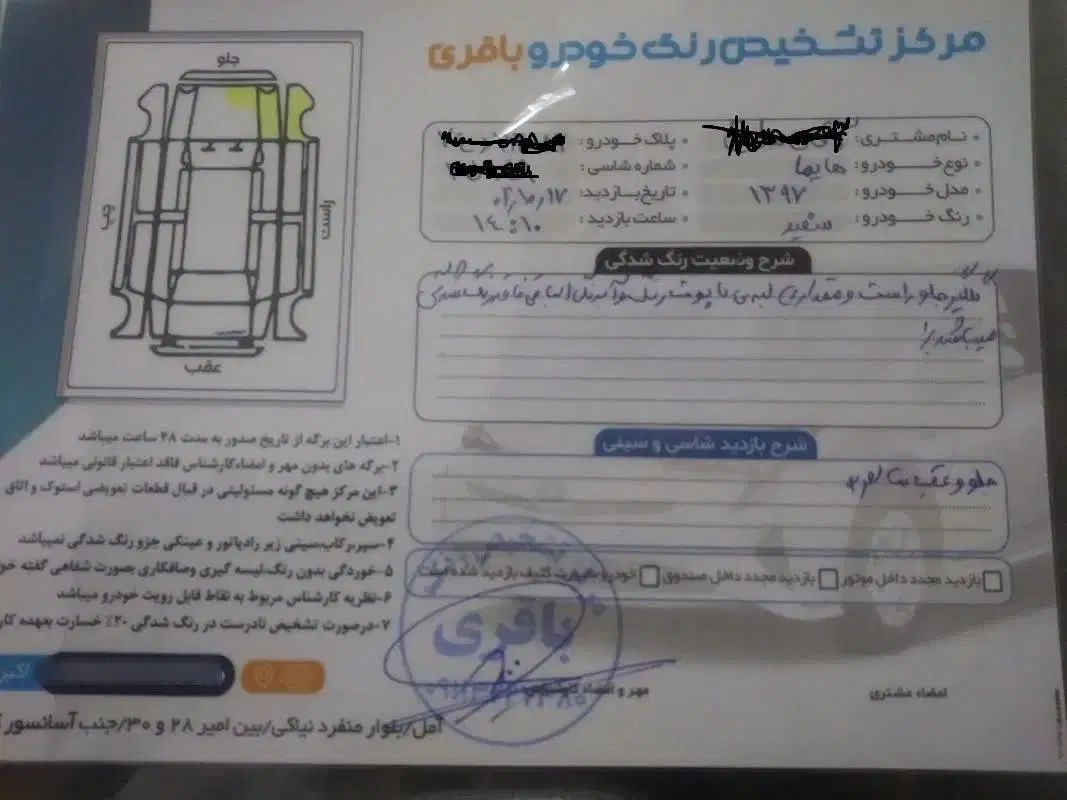 مرکز تشخیص رنگ خودرو باقری
نام مشتری:
پلاک خودرو:
نوع خودرو: هایما
شماره شاسی:
مدل خودرو: ۱۳۹۷
تاریخ بازدید: ۰۲,۱۰,۱۷
رنگ خودرو: سفید
ساعت بازدید: ۱۴:۱۰
شرح وضعیت رنگ شدگی
گلگیر جلو راست و مقداری لبه ی کاپوت رنگ
میباشند
شرح بازدید شاسی و سینی
جلو و عقب سالم
بازدید مجدد داخل موتور
بازدید مجدد داخل صندوق
خودرو بصورت کثیف بازدید شده است
مهر و امضاء کارشناس
امضاء مشتری
جلو
چپ
راست
عقب
۱-اعتبار این برگه از تاریخ صدور به مدت ۴۸ ساعت میباشد
۲-برگه های بدون مهر و امضاء کارشناس فاقد اعتبار قانونی میباشد
۳-این مرکز هیچ گونه مسئولیتی در قبال قطعات تعویضی استوک و اتاق
تعویض نخواهد داشت
۴-سپر،رکاب،سینی زیر رادیاتور و عینکی جزو رنگ شدگی نمیباشد
۵-خوردگی بدون رنگ،لیسه گیری وصافکاری بصورت شفاهی گفته
۶-نظریه کارشناس مربوط به نقاط قابل رویت خودرو میباشد
۷-درصورت تشخیص نادرست در رنگ شدگی ۳۰٪ خسارت بعهده
باقری
آمل/بلوار منفرد نیاکی/بین امیر ۲۸ و ۳۰/جنب آسانسور